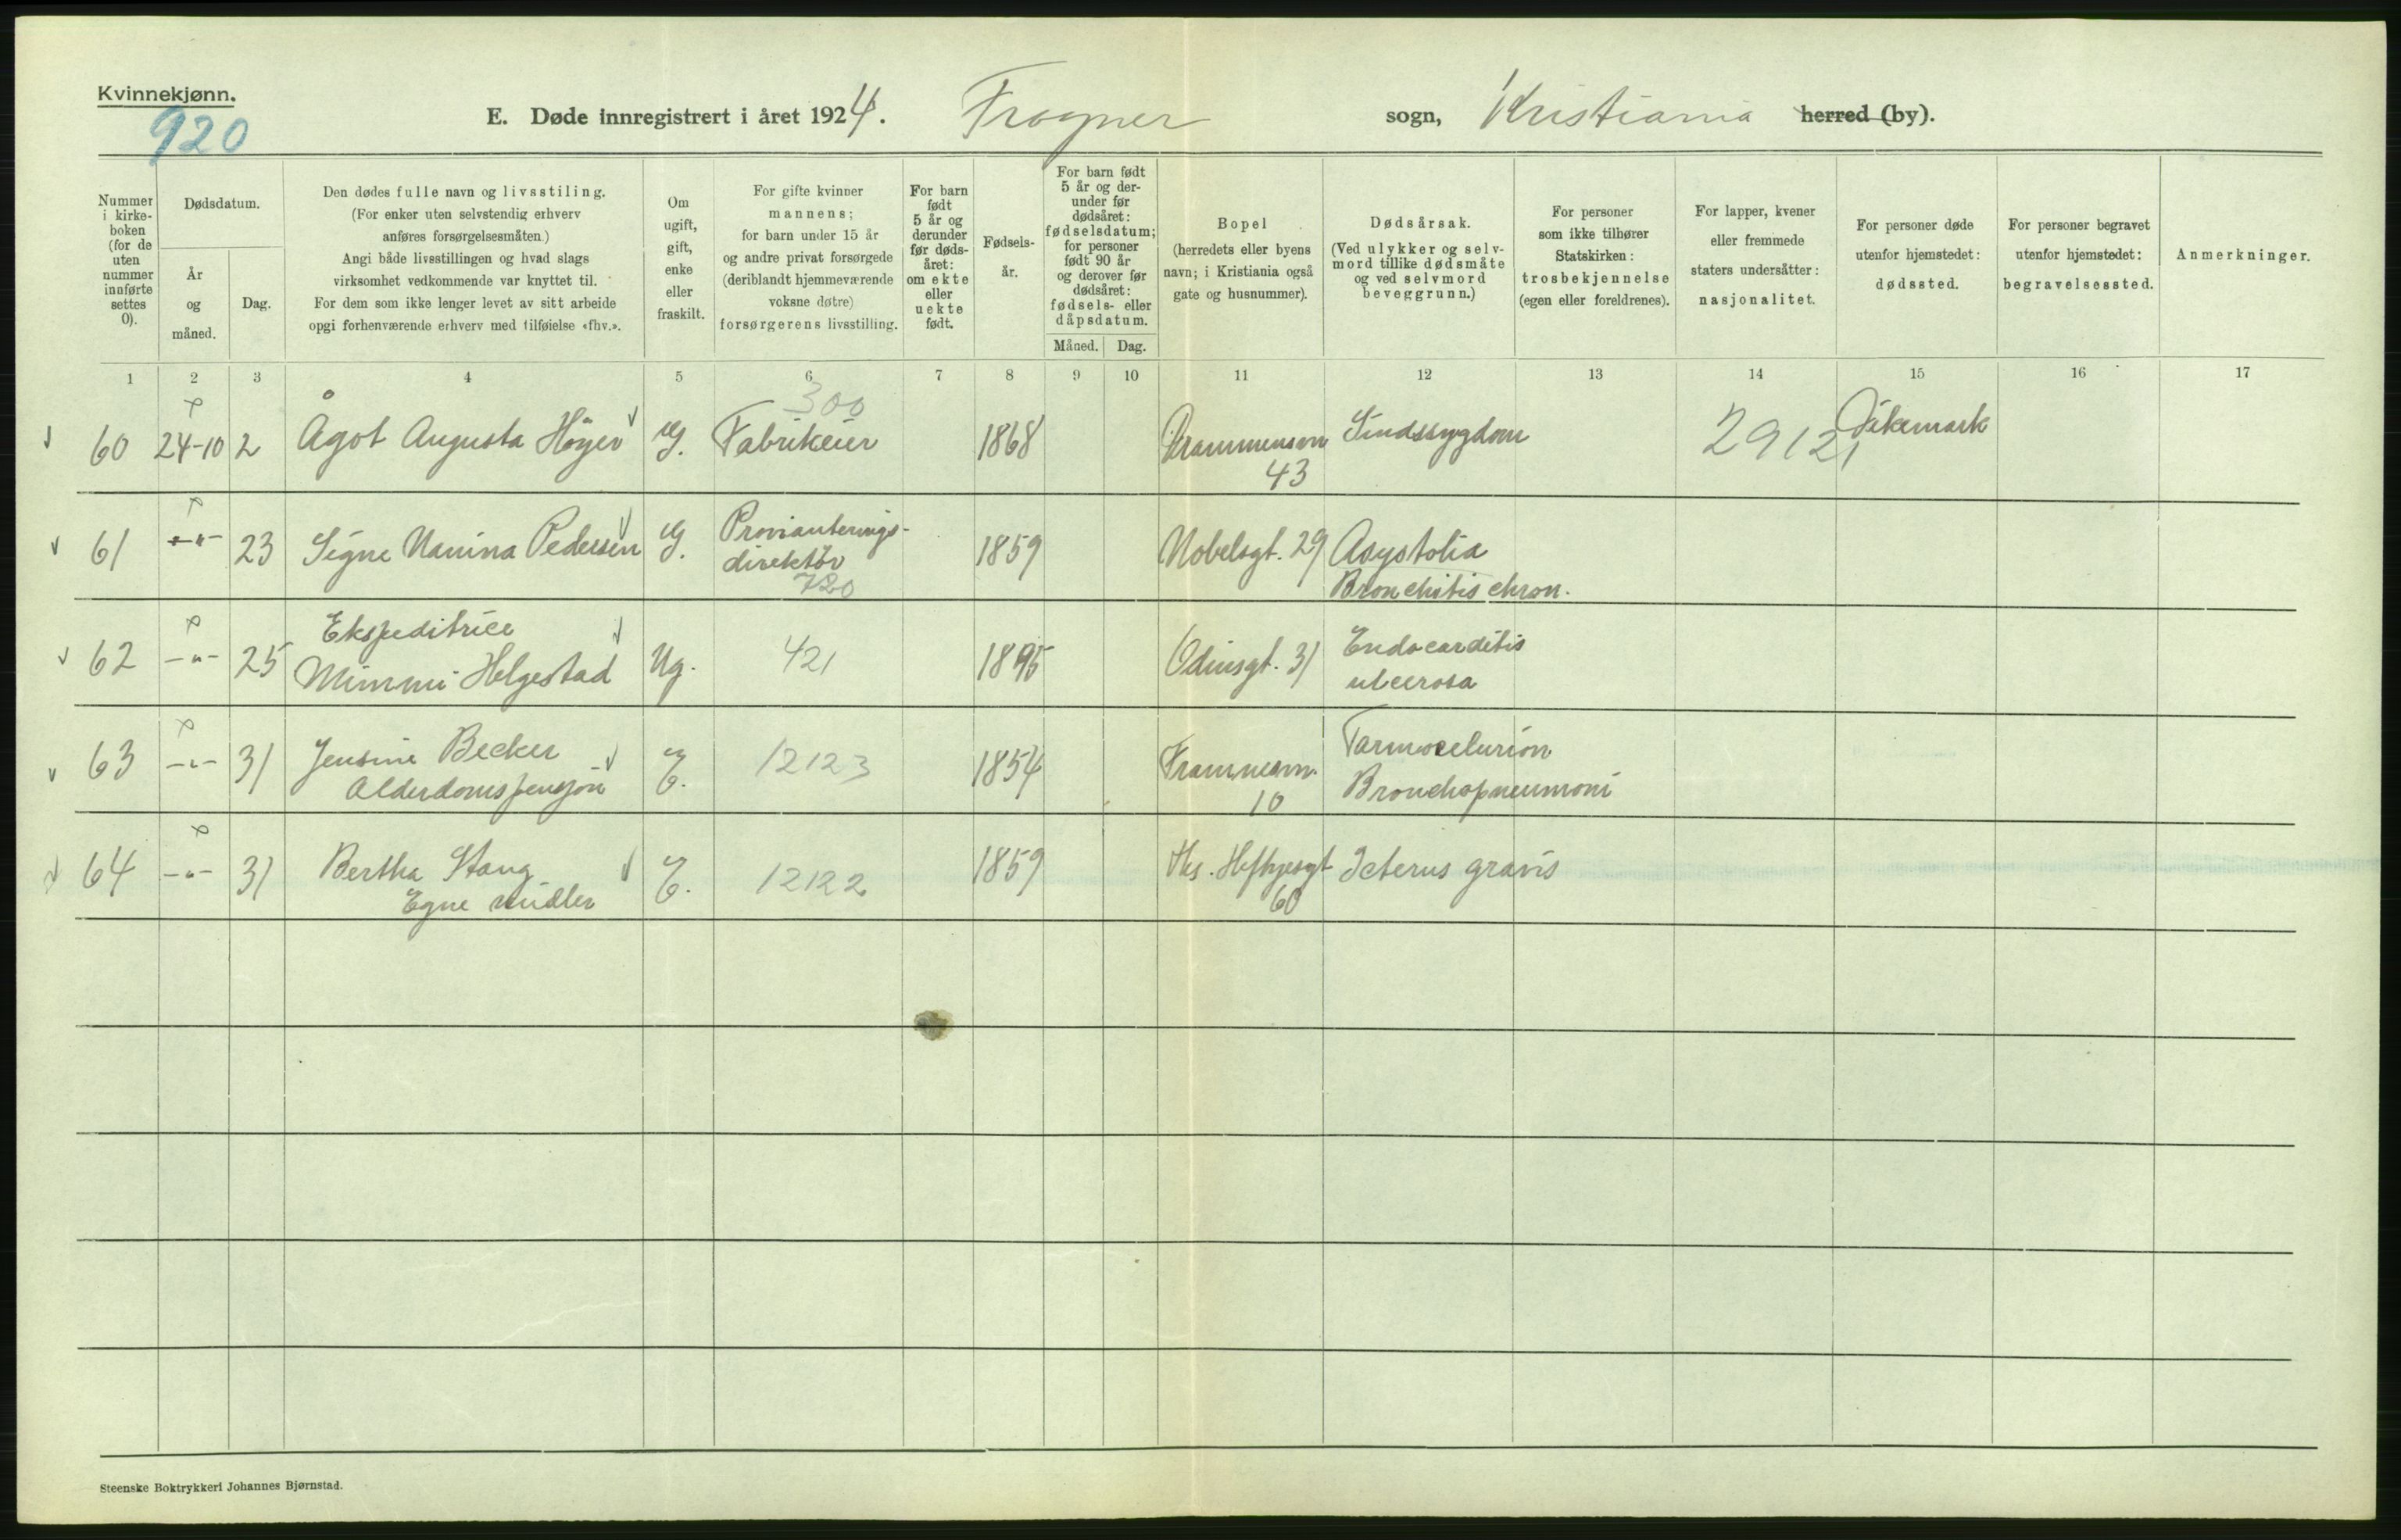 Kvinnekjønn.
920
E. Døde innregistrert i året 1924. Frogner sogn, Kristiania herred (by).
Nummer i kirkeboken (for de uten nummer innførte settes 0).
Dødsdatum.
År og måned.
Dag.
Den dødes fulle navn og livsstiling.
(For enker uten selvstendig erhverv
anføres forsørgelsesmåten.)
Angi både livsstillingen og hvad slags
virksomhet vedkommende var knyttet til.
For dem som ikke lenger levet av sitt arbeide
opgi forhenværende erhverv med tilføielse «fhv.».
Om ugift, gift, enke eller fraskilt.
For gifte kvinner
mannens;
for barn under 15 år
og andre privat forsørgede
(deriblandt hjemmeværende
voksne døtre)
forsørgerens livsstilling.
For barn født 5 år og derunder før dødsåret: om ekte eller uekte født.
Fødselsår.
For barn født
5 år og der-
under før
dødsåret:
fødselsdatum;
for personer
født 90 år
og derover før
dødsåret:
fødsels- eller
dåpsdatum.
Måned. Dag.
Bopel
(herredets eller byens
navn; i Kristiania også
gate og husnummer).
Dødsårsak.
(Ved ulykker og selv-
mord tillike dødsmåte
og ved selvmord
beveggrunn.)
For personer
som ikke tilhører
Statskirken:
trosbekjennelse
(egen eller foreldrenes).
For lapper, kvener
eller fremmede
staters undersåtter:
nasjonalitet.
For personer døde
utenfor hjemstedet:
dødssted.
For personer begravet
utenfor hjemstedet:
begravelsessted.
Anmerkninger.
1 2 3 4 5 6 7 8 9 10 11 12 13 14 15 16 17
300
60 24-10 2 Ågot Augusta Høyer G. Fabrikeier 1868 Drammensvn 43 Sindssygdom 29121 Dikemark
61 -"- 23 Signe Nanina Pedersen G. Provianterings-
direktør
720
1859 Nobelsgt. 29 Asystolia
Bronchitis chron.
62 -"- 25 Ekspeditrice
Mimmi Helgestad Ug. 421 1895 Odinsgt. 31 Endocarditis
ulcerosa
63 -"- 31 Jensine Becker
Alderdomspensjon E. 12123 1854 Framnesvn.
10
Bronchopneumoni
64 -"- 31 Bertha Stang
Egne midler E. 12122 1859 Ths. Heftyesgt
60
Icterus gravis
Steenske Boktrykkeri Johannes Bjørnstad.